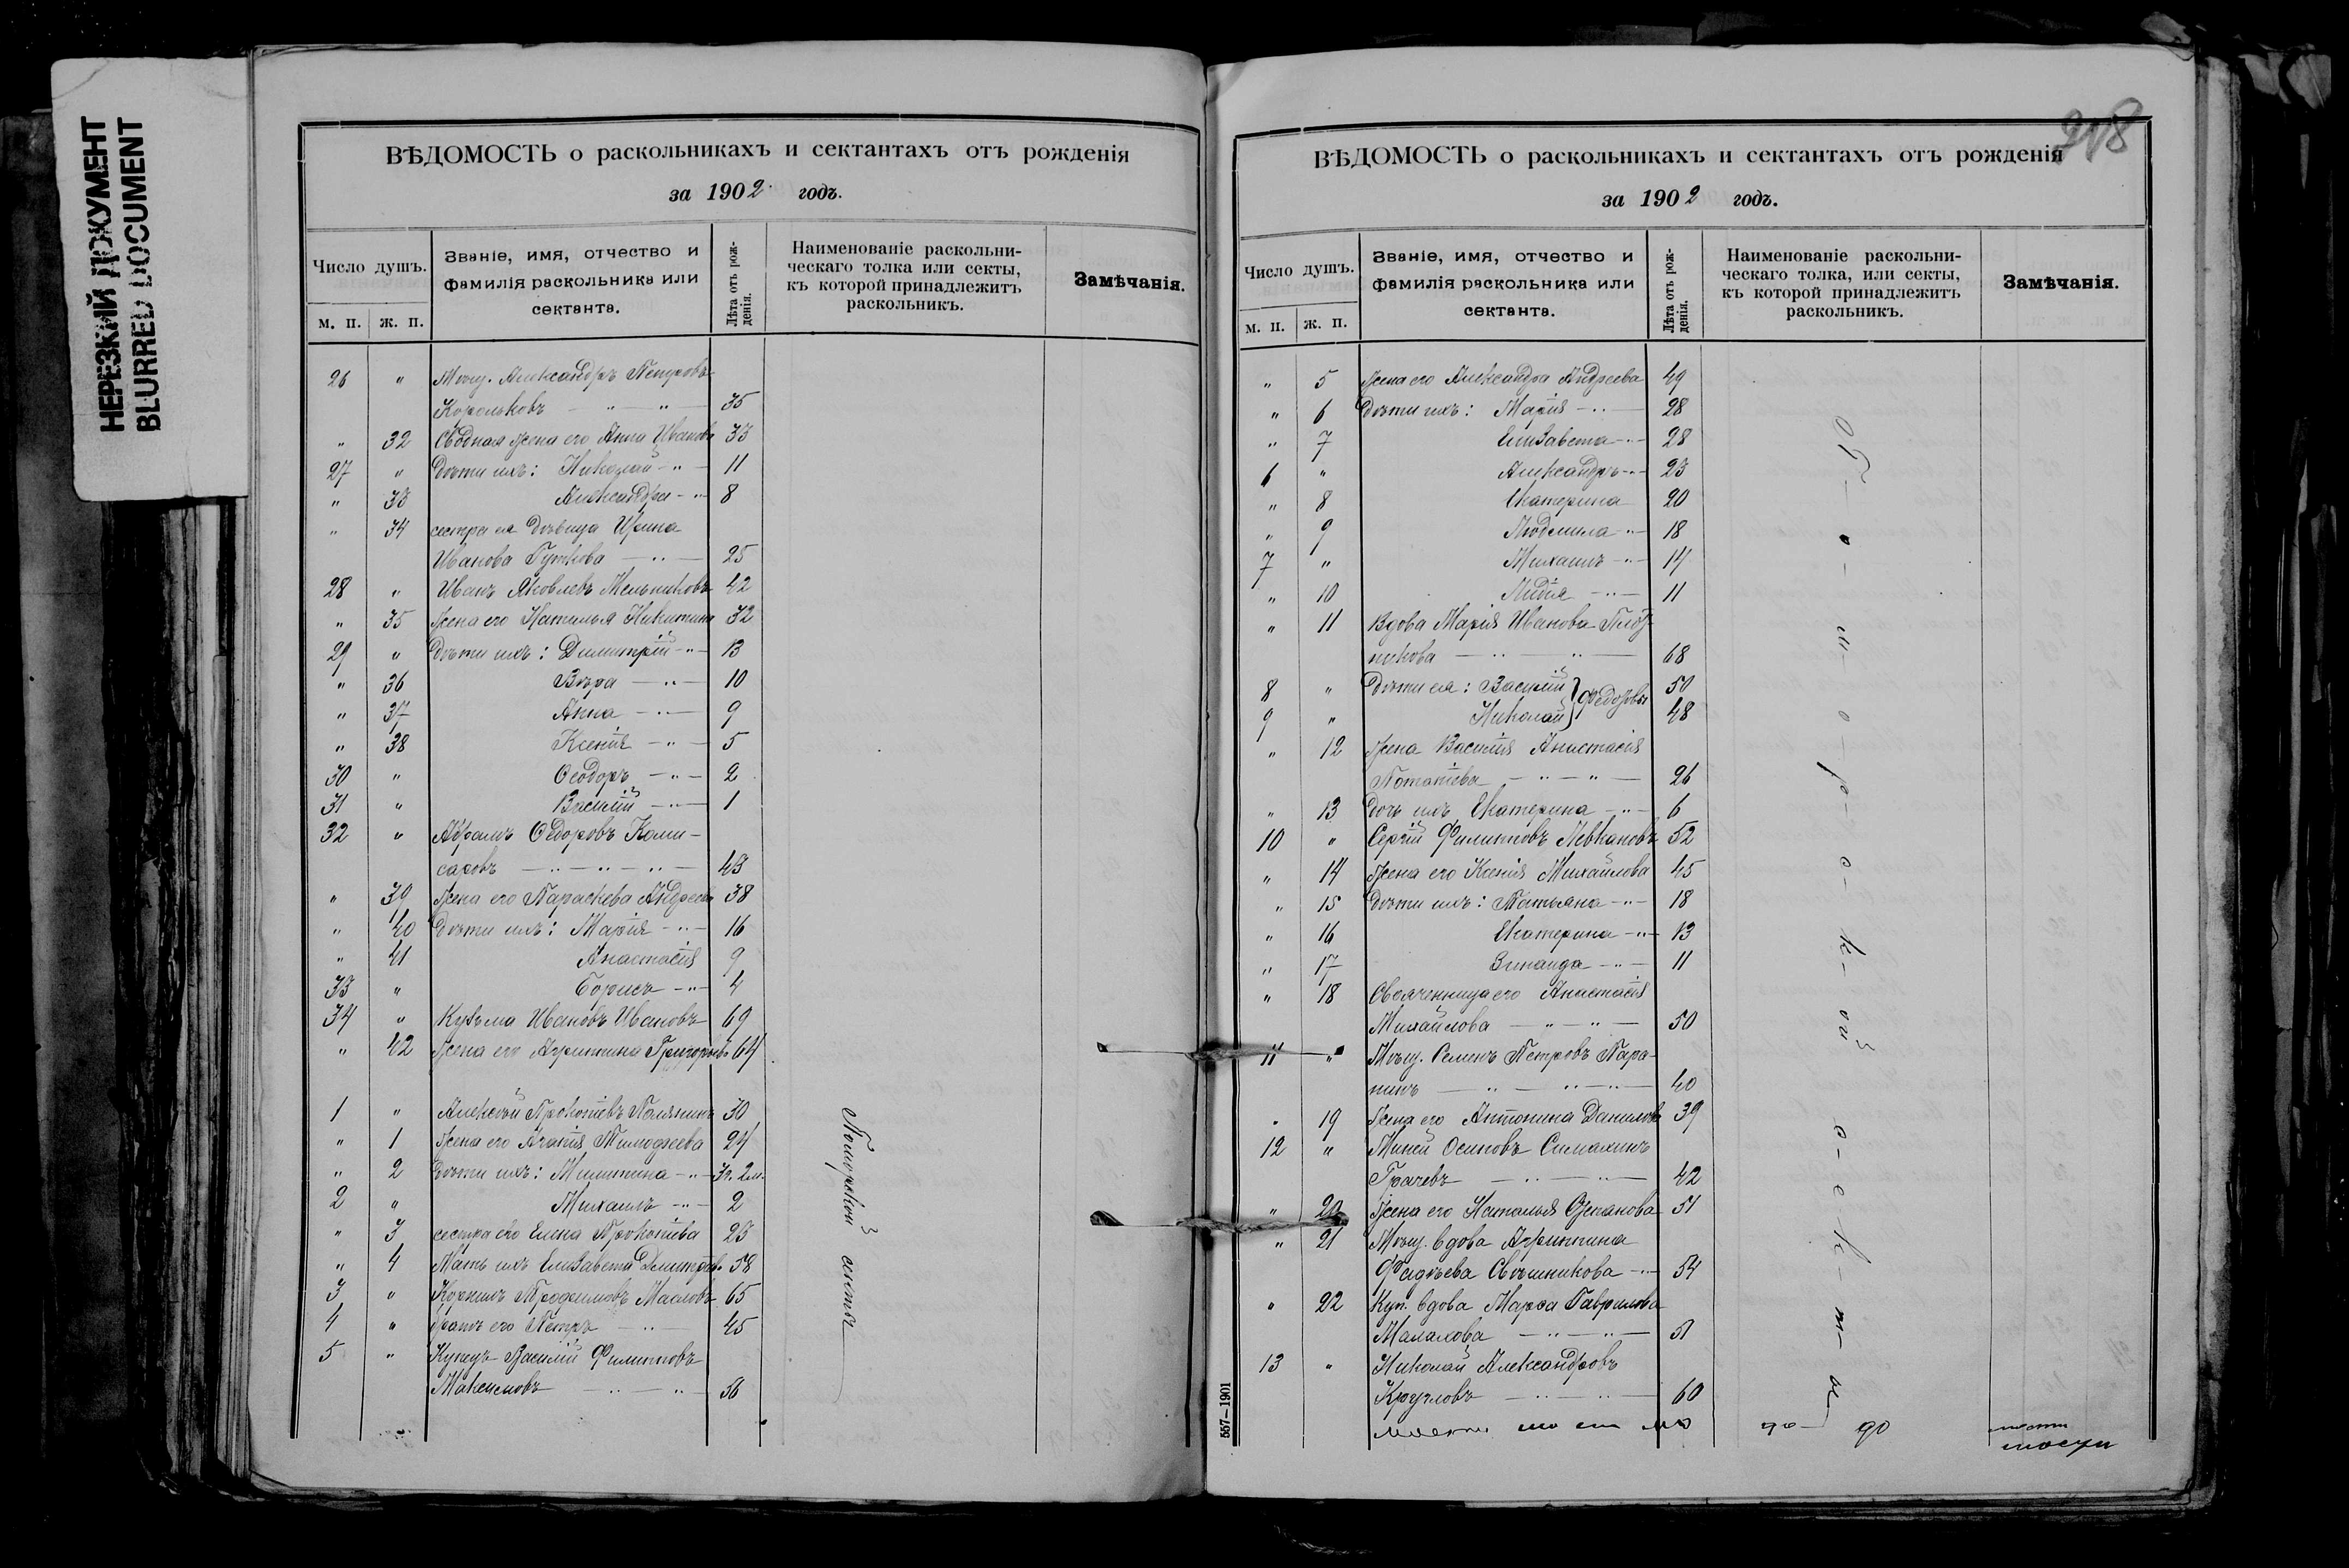 НЕРЕЗКИЙ ДОКУМЕНТ
BLURRED DOCUMENT
ВѢДОМОСТЬ о раскольникахъ и сектантахъ отъ рожденія
за 1902 годъ.
Число душъ.
м. п. ж. п.
Званіе, имя, отчество и
фамилія раскольника или
сектанта.
Лѣта отъ рож-
денія.
Наименованіе раскольни-
ческаго толка или секты,
къ которой принадлежитъ
раскольникъ.
Замѣчанія.
26 " Мѣщ. Александръ Петровъ
Корольковъ — " — " — 35
" 32 Сводная жена его Анна Иванова 33
27 " Дѣти ихъ: Николай — " — 11
" 33 Александра — " — 8
" 34 сестра ея дѣвица Ирина
Иванова Гуткова — " — 25
28 " Иванъ Яковлевъ Мельниковъ 42
" 35 Жена его Наталья Никитина 32
29 " Дѣти ихъ: Димитрій — " — 13
" 36 Вѣра — " — 10
" 37 Анна — " — 9
" 38 Ксенія — " — 5
30 " Ѳеодоръ — " — 2
31 " Василій — " — 1
32 " Абрамъ Ѳедоровъ Коми-
саровъ — " — " — " — 43
" 39 Жена его Параскева Андреева 38
" 40 Дѣти ихъ: Марія — " — 16
" 41 Анастасія 9
33 " Борисъ — " — 4
34 " Кузьма Ивановъ Ивановъ 69
" 42 Жена его Агриппина Григорьева 64
1 " Алексѣй Прокопіевъ 30
" 1 Жена его Агапія 24
" 2 Дѣти ихъ: — " — 3г. 2м.
2 " Михаилъ — " — 2
" 3 сестра его Елена Прокопіева 23
" 4 Мать ихъ Елизавета Дмитріева 58
3 " Трофимовъ Масловъ 65
4 " братъ его Петръ — " — 45
5 " Купецъ Василій Филипповъ
Максимовъ — " — " 56
Поморской секты
218
ВѢДОМОСТЬ о раскольникахъ и сектантахъ отъ рожденія
за 1902 годъ.
Число душъ.
м. п. ж. п.
Званіе, имя, отчество и
фамилія раскольника или
сектанта.
Лѣта отъ рож-
денія.
Наименованіе раскольни-
ческаго толка, или секты,
къ которой принадлежитъ
раскольникъ.
Замѣчанія.
" 5 Жена его Александра Андреева 49
" 6 Дѣти ихъ: Марія — " — 28
" 7 Елизавета — " — 28
6 " Александръ — " — 23
" 8 Екатерина 20
" 9 Людмила — " — 18
7 " Михаилъ — " — 14
" 10 Лидія — " — 11
" 11 Вдова Марія Иванова Плот-
никова — " — " — 68
8 " Дѣти ея: Василій } Федоровы 50
9 " Николай 48
" 12 Жена Василія Анастасія
Потапіева — " — " — 26
" 13 Дочь ихъ Екатерина — " — 6
10 " Сергій Филипповъ Левкановъ 52
" 14 Жена его Ксенія Михайлова 45
" 15 Дѣти ихъ: Татьяна — " — 18
" 16 Екатерина — " — 13
" 17 Зинаида — " — 11
" 18 Своячениица его Анастасія
Михайлова — " — " — 50
11 " Мѣщ. Семенъ Петровъ Пара-
нинъ — " — " — " — 40
" 19 Жена его Антонина Данилова 39
12 " Миней Осиповъ Симахинъ
Грачевъ — " — " — 42
" 20 Жена его Наталья Степанова 51
" 21 Мѣщ. вдова Агриппина
Фадѣева Свѣшникова — " — 54
" 22 Куп. вдова Марѳа Гаврилова
Малахова — " — " — 51
13 " Николай Александровъ
Кругловъ — " — " — 60
П-о-м-о-р-с-к-ой
с-е-к-т-ы
557—1901